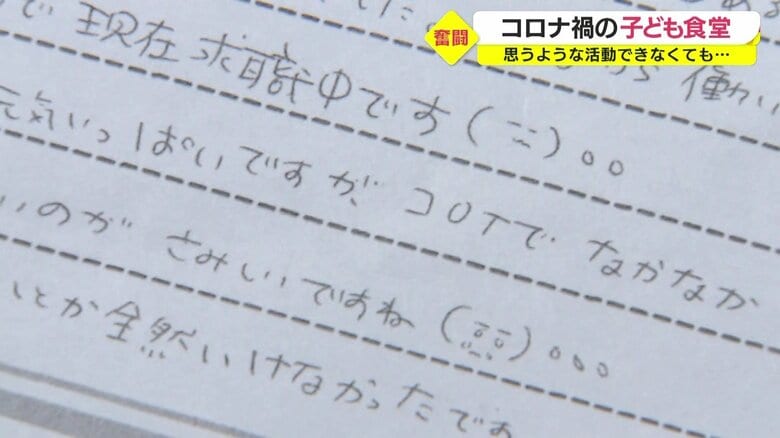 奮闘
コロナ禍の子ども食堂
思うような活動できなくても…
働
で 現在 求職中です(˙˙)。。
元気いっぱいですが、コロナで なかなか
いのが さみしいですね(
)。。。
とか全然いけなかったです